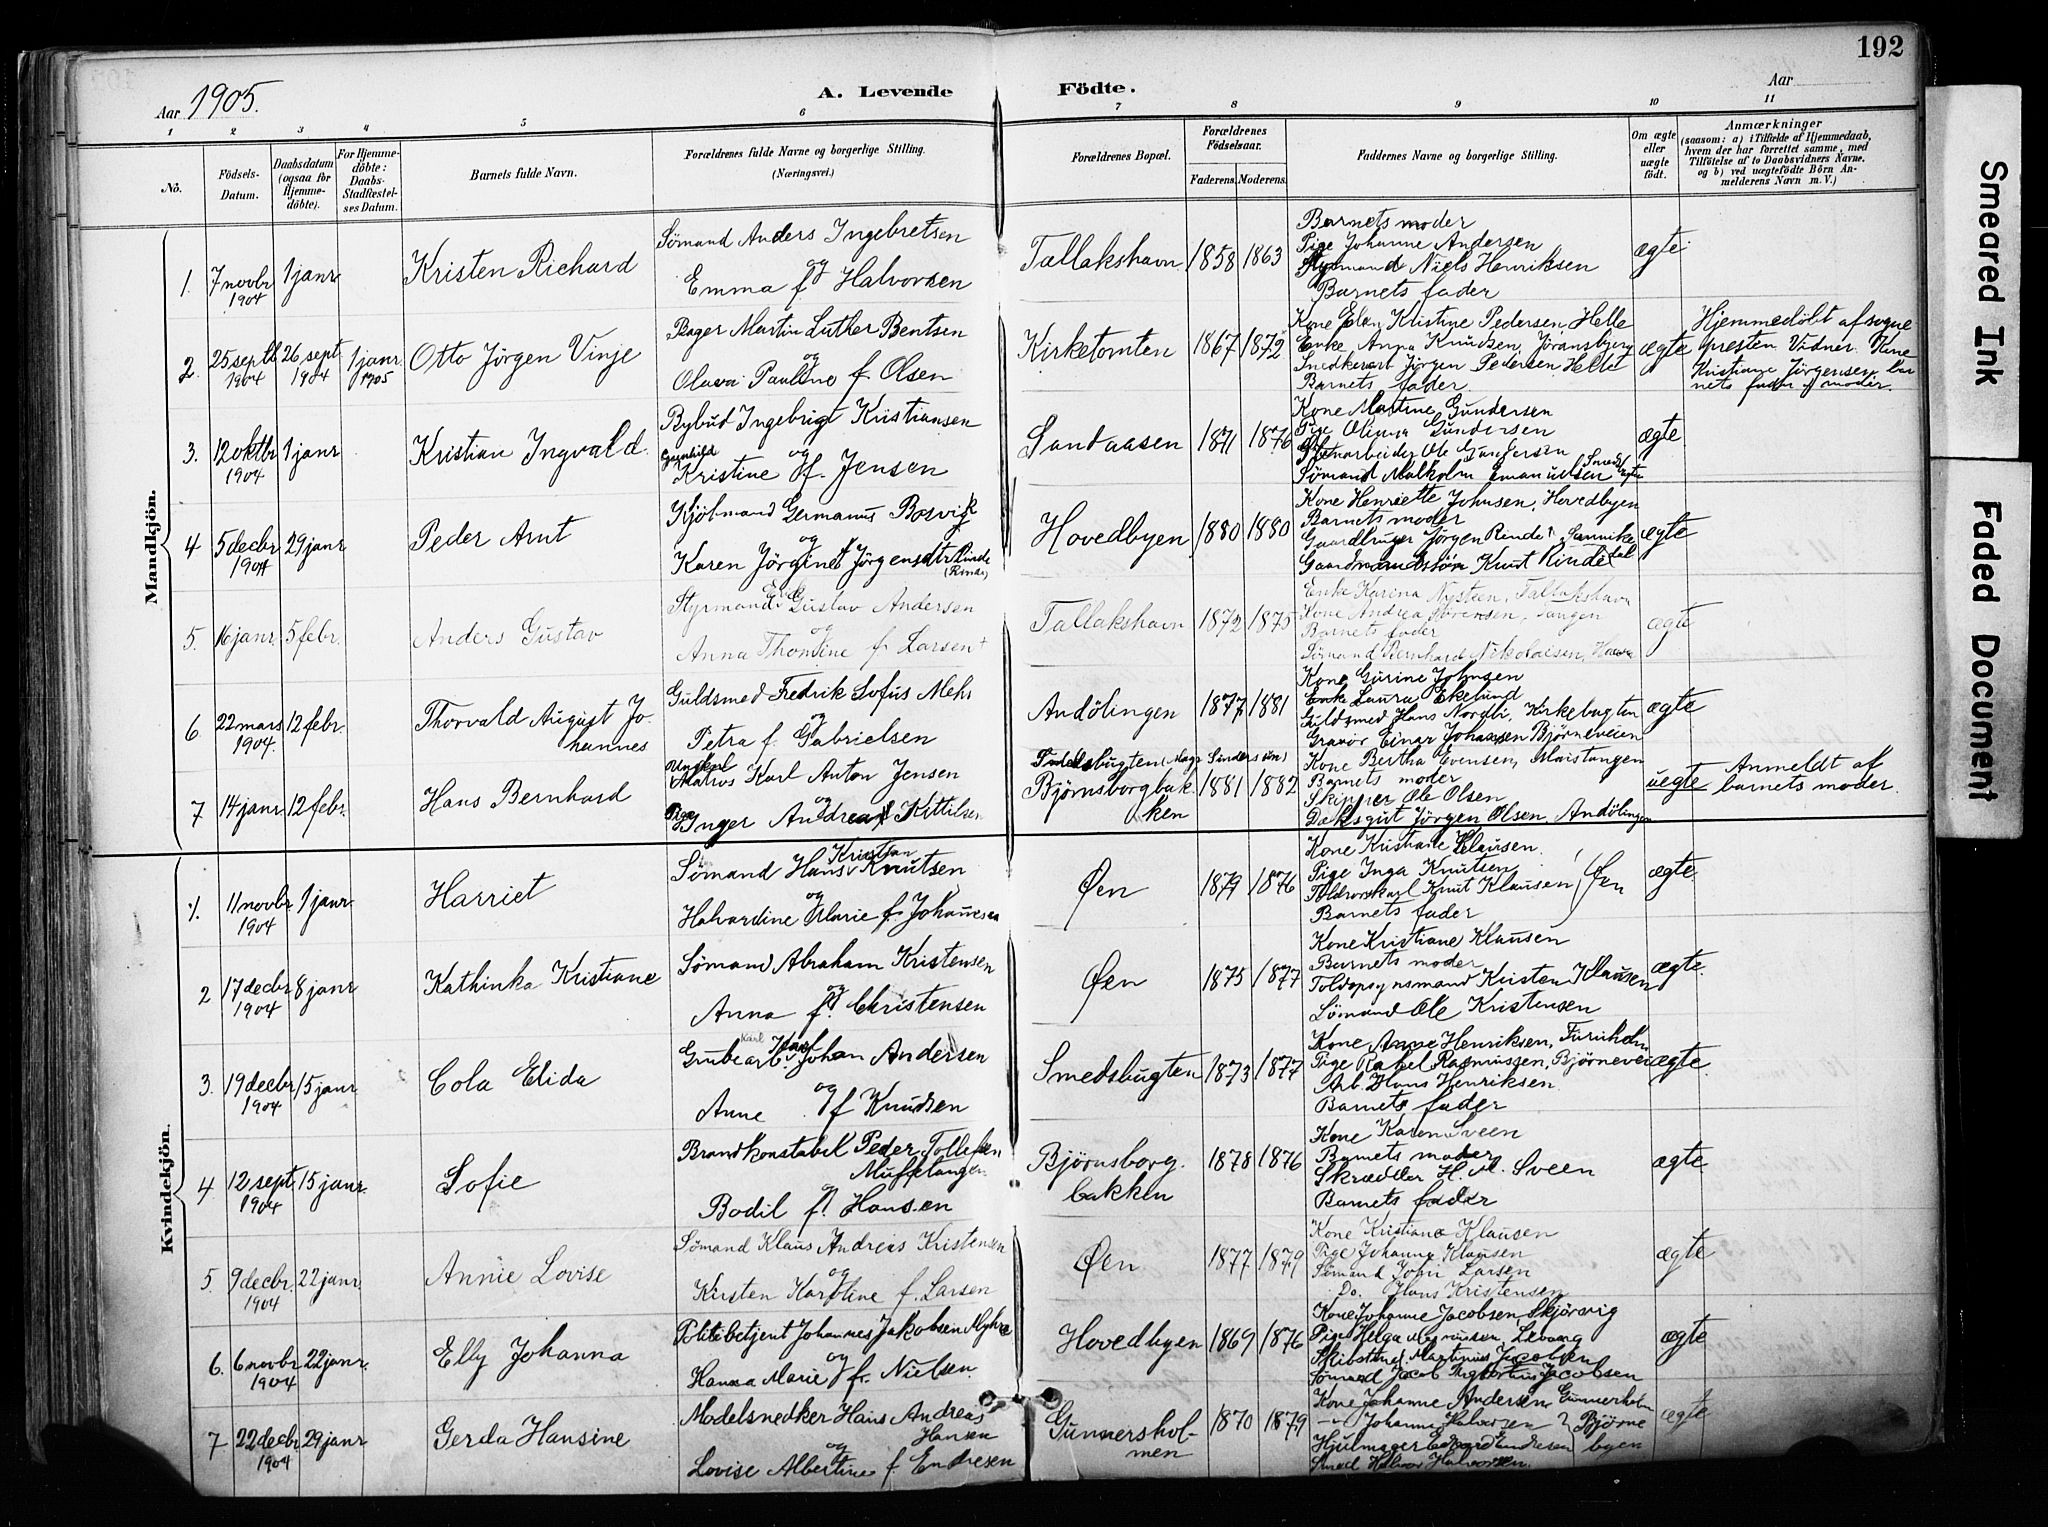 192
Aar 1905.
A. Levende Födte.
Aar
1 2 3 4 5 6 7 8 9 10 11
No.
Födsels-Datum.
Daabsdatum (ogsaa for Hjemmedöbte).
For Hjemmedöbte: Daabs-Stadfæstelses Datum.
Barnets fulde Navn.
Forældrenes fulde Navne og borgerlige Stilling. (Næringsvei.)
Forældrenes Bopæl.
Forældrenes Födselsaar.
Faderens. Moderens.
Faddernes Navne og borgerlige Stilling.
Om ægte eller uægte födt.
Anmærkninger
(saasom: a) i Tilfælde af Hjemmedaab, hvem der har forrettet samme, med Tilföielse af to Daabsvidners Navne. og b) ved uægtefödte Börn Anmelderens Navn m. V.)
Mandkjön.
1. 7 novbr 1904 1 janr Kristen Richard
Sömand Anders Ingebretsen
og
Emma f. Halvorsen
Tallakshavn 1858 1863
Barnets moder
Pige Johanne Andersen
Styrmand Niels Henriksen
Barnets fader
ægte
2. 25 septb 1904 26 sept 1904 1 janr 1905 Otto Jörgen Vinje
Bager Martin Luther Bentsen
og
Olava Pauline f. Olsen
Kirketomten 1867 1872
Kone Elen Kristine Pedersen, Helle
Enke Anna Knudsen, Jöransbyerg
Snedkerarb Jörgen Pedersen Helle
Barnets fader
ægte
Hjemmedöbt af sogne
presten Vidner: Kone
Kristiane Jörgensen, bar
nets fader og moder.
3. 12 oktbr 1904 1 janr Kristian Ingvald
Bybud Ingebrigt Kristiansen
og
Gunhild
Kristine f. Jensen
Sandaasen 1871 1876
Kone Martine Gundersen
Pige Olivia Gundersen
Ole Gundersen
Sömand Malkolm Emanuelsen
ægte
4 5 decbr 1904 29 janr Peder Arnt
Kjöbmand Germanus Bosvik
og
Karen Jörgine f Jörgensdtr Rinde
Hovedbyen 1880 1880
Kone Henriette Johnsen, Hovedbyen
Barnets moder
Gaardbruger Jörgen Rinde, Sannike
Gaardmandssön Knut Rinde dal
ægte
5. 16 janr. 5 febr. Anders Gustav
Styrmand Gustav Andersen
og
Anna Thomine f. Larsen
Tallakshavn 1872 1875
Enke Karina Nysteen, Tallakshavn
Kone Andrea Sörensen, Tangen
Barnets fader
Sömand Bernhard Nikolaisen
ægte
6 22 mars 1904. 12 febr. Thorvald August Johannes
Guldsmed Fredrik Sofus Mehr
og
Petra f. Gabrielsen
Andölingen 1877 1881
Kone Gurine Johnsen
Enke Laura Ekelund
Guldsmed Hans Nordli, Kirkebugten
Gravör Einar Johansen Bjørneveien
ægte
7 14 janr. 12 febr. Hans Bernhard
Ungkarl
Matros Karl Anton Jensen
og
Pige
Inger Andrea f Kittilsen
Bjørnsborgbakken 1881 1882
Kone Bertha Evensen, Maistangen
Barnets moder
Skipper Ole Olsen
Dæksgut Jörgen Olsen, Andölingen
uegte
Anmeldt af
barnets moder.
Kvindekjön.
1. 11 novbr 1904 1 janr Harriet
Sömand Hans Kristian Knutsen
og
Halvardine Marie f. Johannesen
Øen 1879 1876
Kone Kristiane Klausen
Pige Inga Knutsen
Toldrorskarl Knut Klausen } Øen
Barnets fader
ægte
2 17 decbr 1904 8 janr Kathinka Kristiane
Sömand Abraham Kristensen
og
Anna f. Christensen
Øen 1875 1877
Kone Kristiane Klausen
Barnets moder
Toldopsynsmand Kristen Klausen
Sömand Ole Kristensen
ægte.
3. 19 decbr 1904 15 janr Cola Elida
Karl
Grubearb. Johan Andersen
og
Anne f Knudsen
Smedsbugten 1873 1877
Kone Anne Henriksen, Furuholm
Pige Rakel Rasmussen, Bjørnevei
Arb. Hans Henriksen
Barnets fader
ægte.
4 12 sept 1904 15 janr. Sofie
Brandkonstabel Peder Tollefsen
og
Bodil f. Hansen
Bjørnsborgbakken 1878 1876
Kone Karen Sveen
Barnets moder
Skrædder H. M. Sveen
Barnets fader
ægte
5. 9 decbr. 1904 22 janr. Annie Lovise
Sömand Klaus Andreas Kristensen
og
Kirsten Karoline f. Larsen
Øen 1877 1879
Kone Kristiane Klausen
Pige Johanne Klausen
Sömand John Larsen
Do. Hans Kristensen
ægte
6. 6 novbr 1904 22 janr. Elly Johanna
Politibetjent Johannes Jakobsen Myhre
og
Hanna Marie f. Nielsen
Hovedbyen 1869 1876
Kone Johanne Jacobsen, Skjörvig
Pige Helga Magnussen, Levang
Skibstömd. Martinius Jacobsen
Sömand Jacob Jacobsen
ægte
7 22 decbr 1904 29 janr Gerda Hansine
Modelsnedker Hans Andreas
Hansen
og
Lovise Albertine f. Endresen
Gunnersholmen 1870 1879
Kone Johanne Andersen Gunnerholm
Johanne Halvorsen } Bjørne
Hjulmager Edvard Endresen byen
Smed Halvor Halvorsen
ægte
Smeared Ink
Faded Document